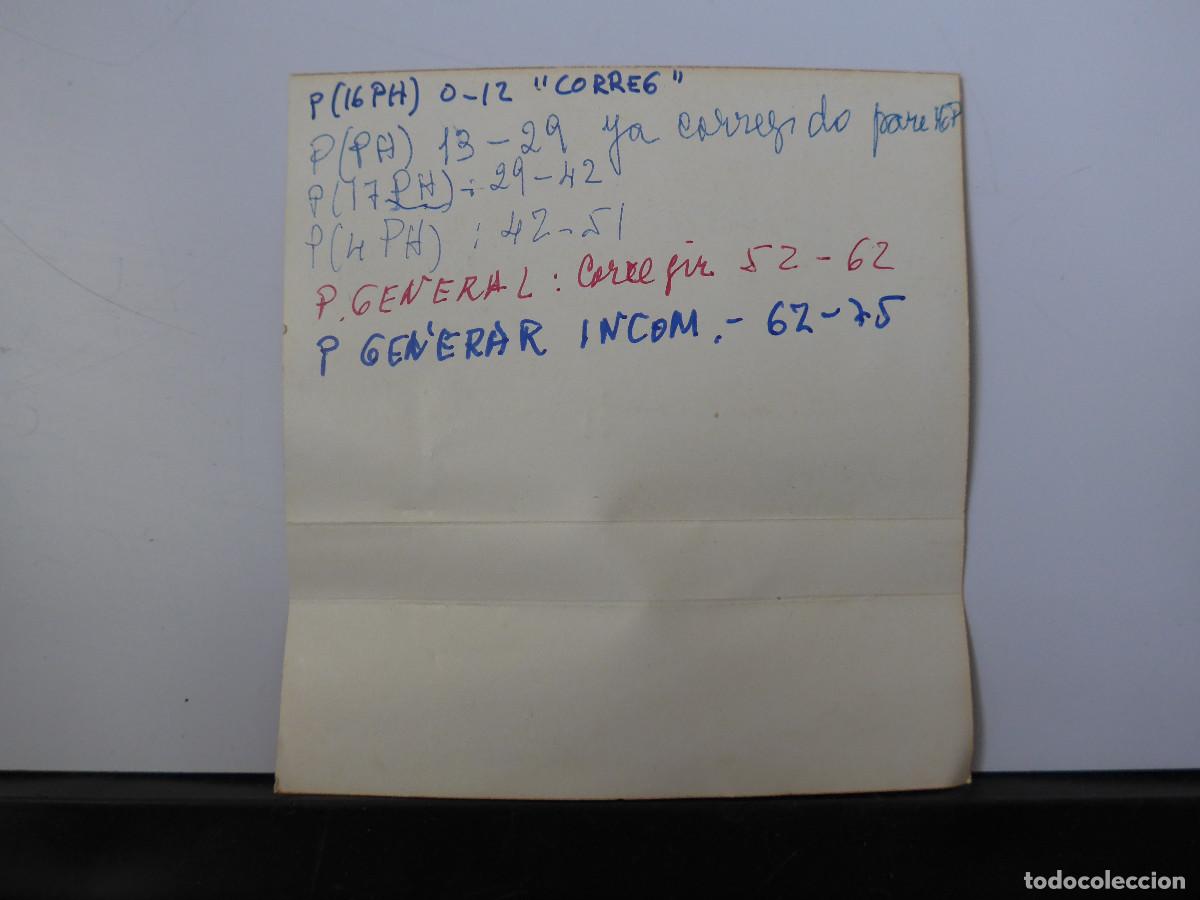 P(16PH) 0-12 "CORREG"
P(PH) 13-29 ya corregido para
P(17PH): 29-42
P(4PH) : 42-51
P. GENERAL: Corregir 52-62
P GENERAR INCOM.- 62-75
todocoleccion